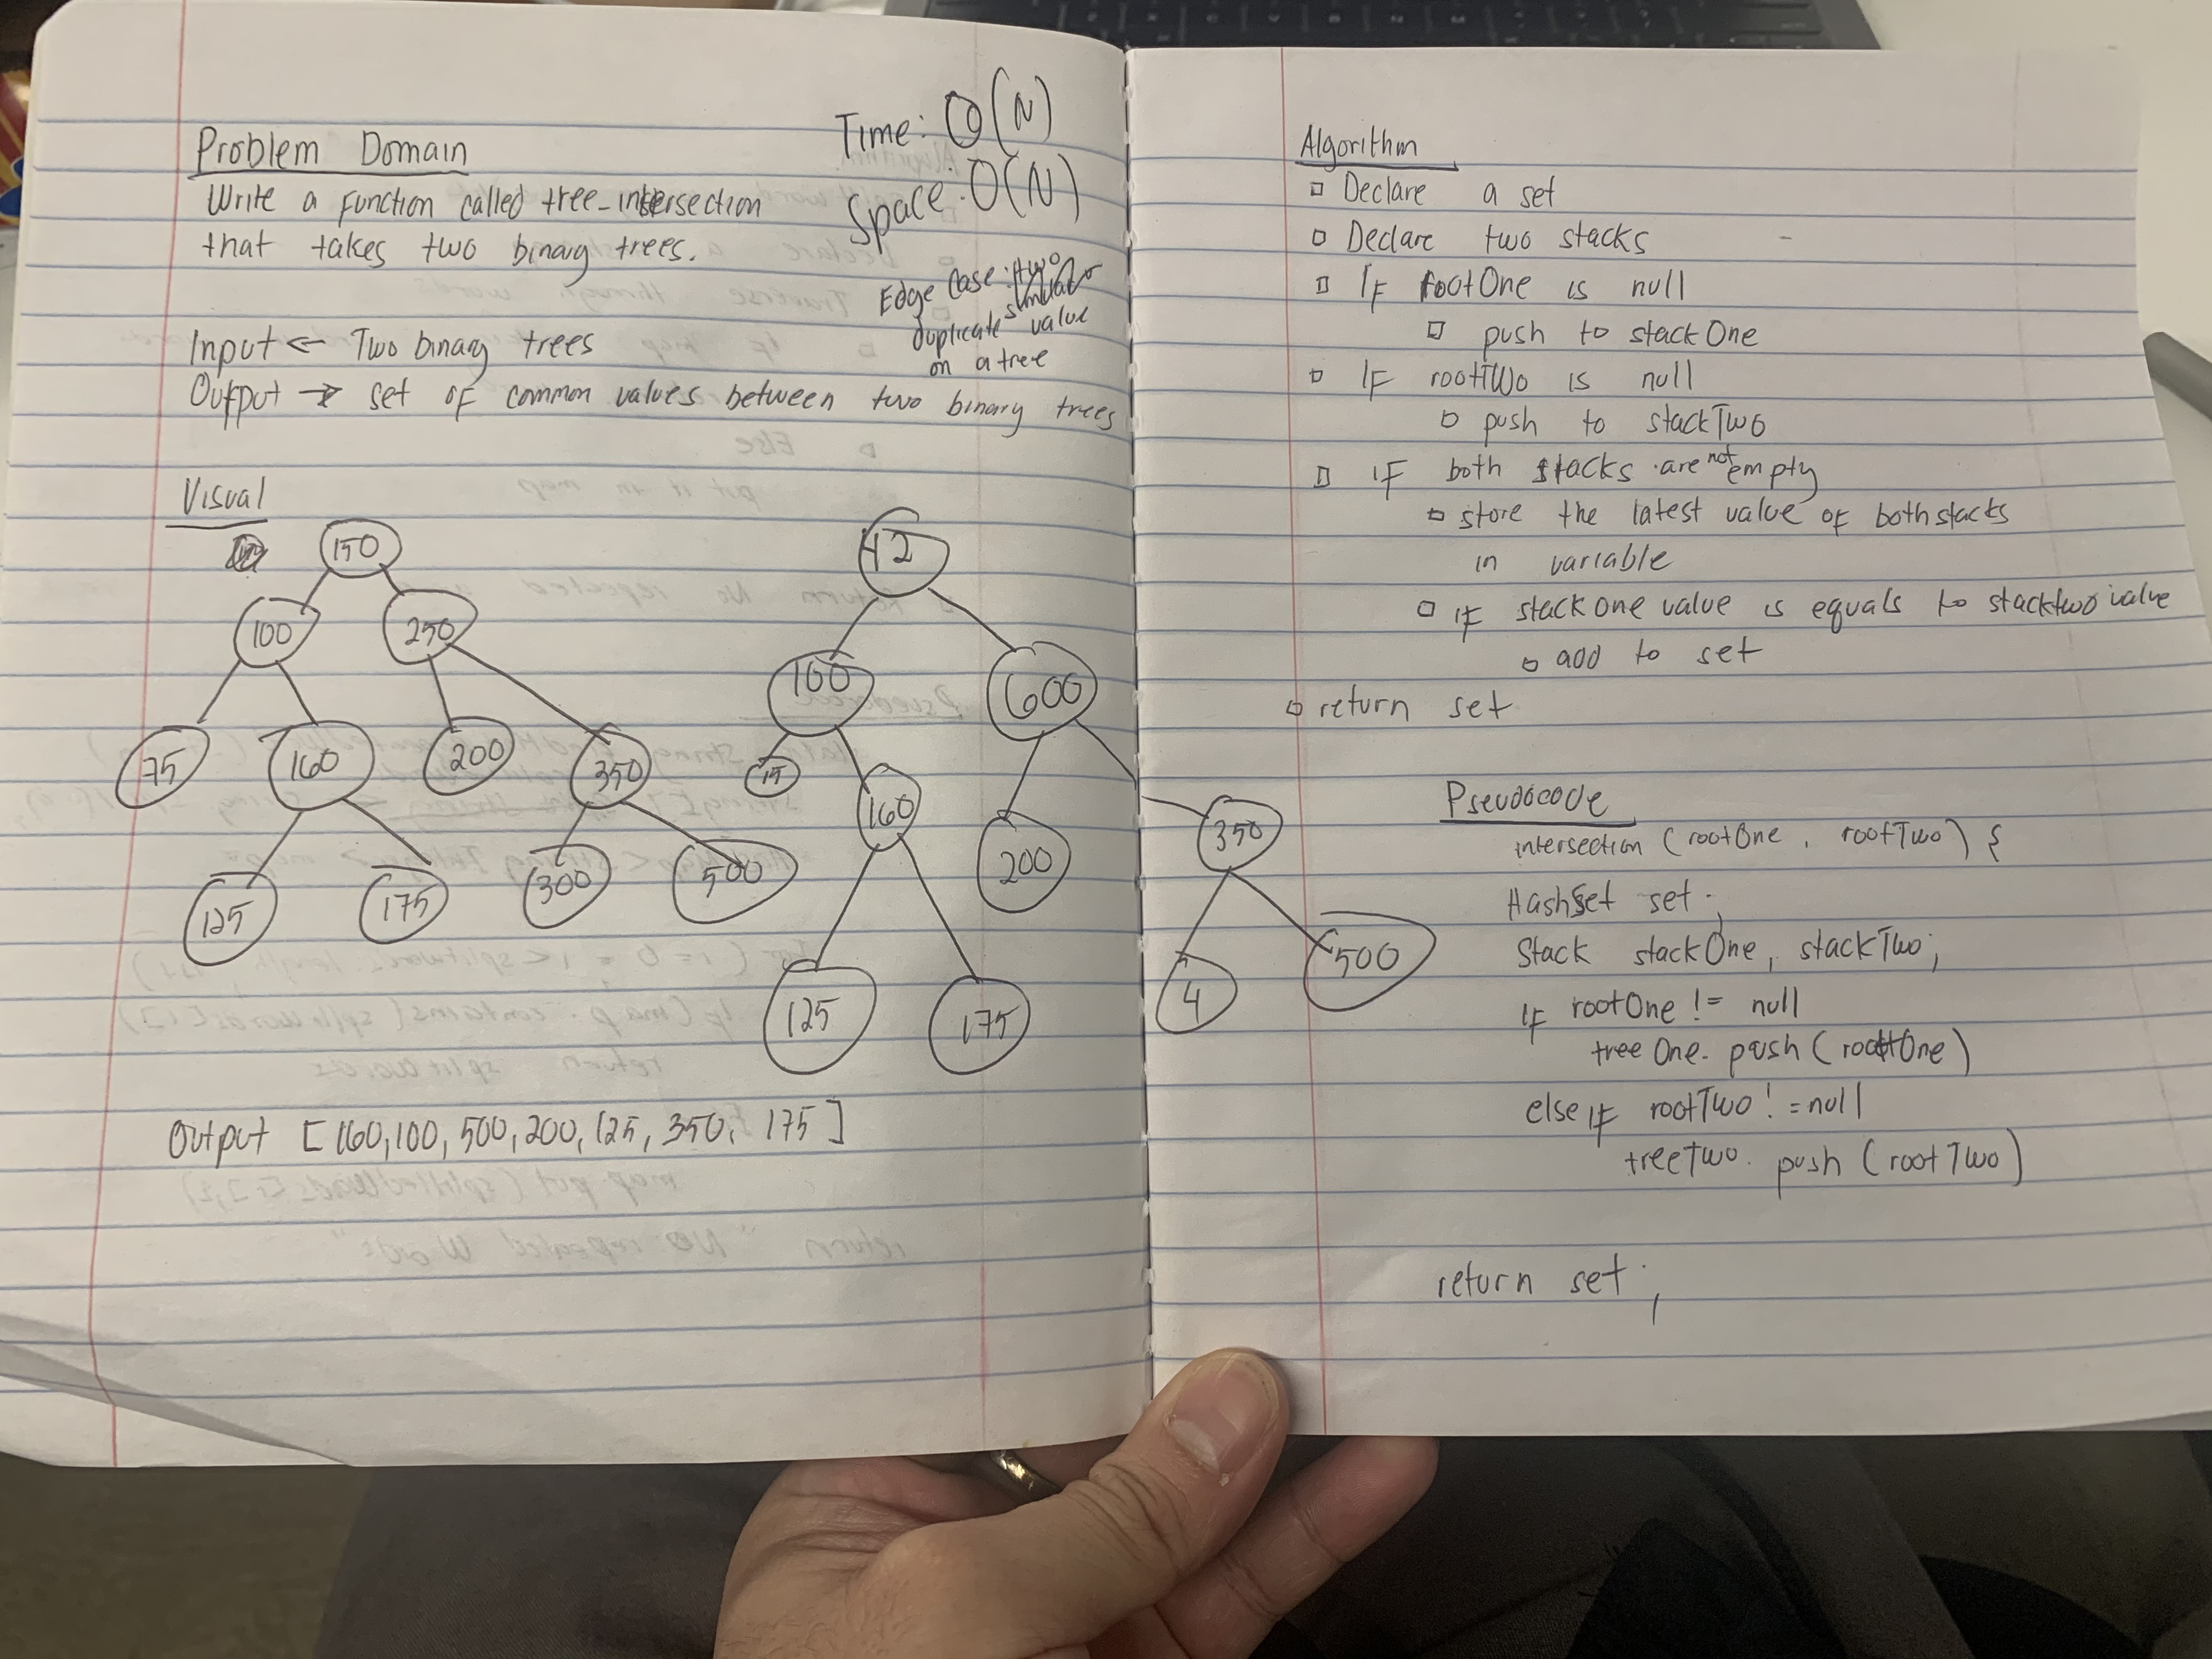 Problem Domain
Write a function called tree-intersection
that takes two binary trees.
Time: O(N)
Space: O(N)
Edge Case: two
similar
duplicate value
on a tree
Input ← Two binary trees
Output → set of common values between two binary trees
Visual
150
100
250
75
160
200
350
125
175
300
500
42
100
600
15
160
200
350
125
175
4
500
Output [160,100,500,200,125,350,175]
Algorithm
Declare a set
Declare two stacks
If rootOne is null
push to stackOne
If rootTwo is null
push to stackTwo
If both stacks are not empty
store the latest value of both stacks
in variable
if stack one value is equals to stacktwo value
add to set
return set
Pseudocode
intersection (rootOne, rootTwo) {
HashSet set;
Stack stackOne, stackTwo;
If rootOne != null
treeOne.push(rootOne)
else if rootTwo != null
treeTwo.push(rootTwo)
return set;